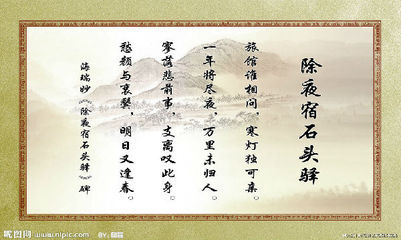 除夜宿石头驿
旅馆谁相问，寒灯独可亲。
一年将尽夜，万里未归人。
寥落悲前事，支离叹此身。
愁颜与衰鬓，明日又逢春。
海瑞妙《除夜宿石头驿》碑
昵图网 www.nipic.com BY: